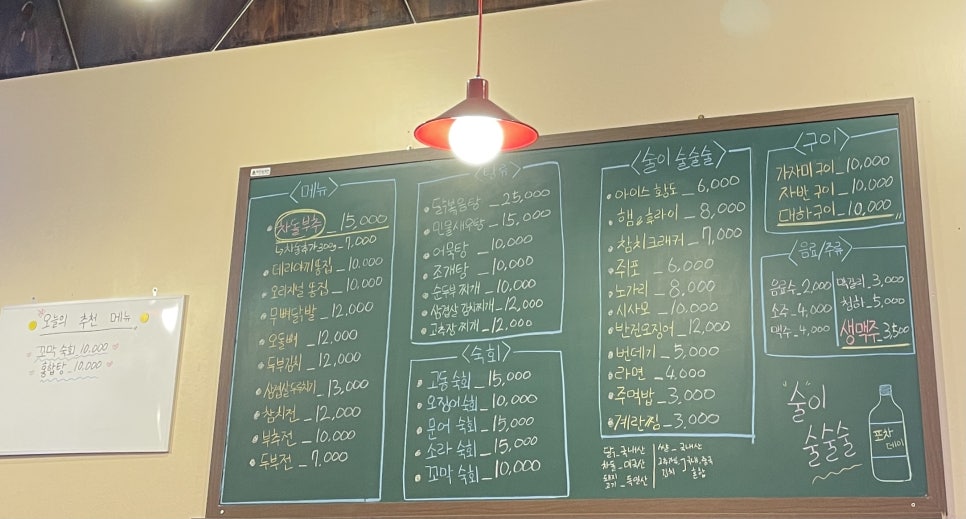 오늘의 추천 메뉴
꼬막 숙회 10,000
홍합탕 _ 10,000
<메뉴>
차돌부추 _ 15,000
↳차돌추가 300g _ 7,000
데리야끼똥집 _ 10,000
오리지널 똥집 _ 10,000
무뼈닭발 _ 12,000
오돌뼈 _ 12,000
두부김치 _ 12,000
삼겹살두루치기 _ 13,000
참치전 _ 12,000
부추전 _ 10,000
두부전 _ 7,000
<탕류>
닭볶음탕 _ 25,000
민물새우탕 _ 15,000
어묵탕 _ 10,000
조개탕 _ 10,000
순두부찌개 _ 10,000
삼겹살 김치찌개 _ 12,000
고추장찌개 _ 12,000
<숙회>
고둥 숙회 _ 15,000
오징어숙회 _ 10,000
문어 숙회 _ 15,000
소라 숙회 _ 15,000
꼬막 숙회 _ 10,000
<술이 술술술>
아이스 황도 _ 6,000
햄&후라이 _ 8,000
참치크래커 _ 7,000
쥐포 _ 6,000
노가리 _ 8,000
시사모 _ 10,000
반건오징어 _ 12,000
번데기 _ 5,000
라면 _ 4,000
주먹밥 _ 3,000
계란찜 _ 3,000
닭 _ 국내산
차돌 _ 미국산
돼지고기 _ 독일산
쌀 _ 국내산
김치
<구이>
가자미구이 _ 10,000
자반구이 _ 10,000
대하구이 _ 10,000
<음료/주류>
음료수 _ 2,000
소주 _ 4,000
맥주 _ 4,000
막걸리 _ 3,000
청하 _ 5,000
생맥주 _ 3,500
"술"이
술술술
포차
데이